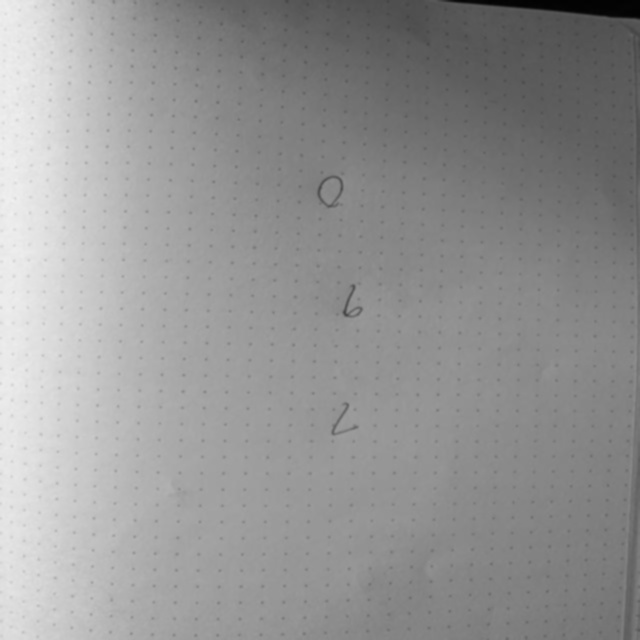 0
6
2